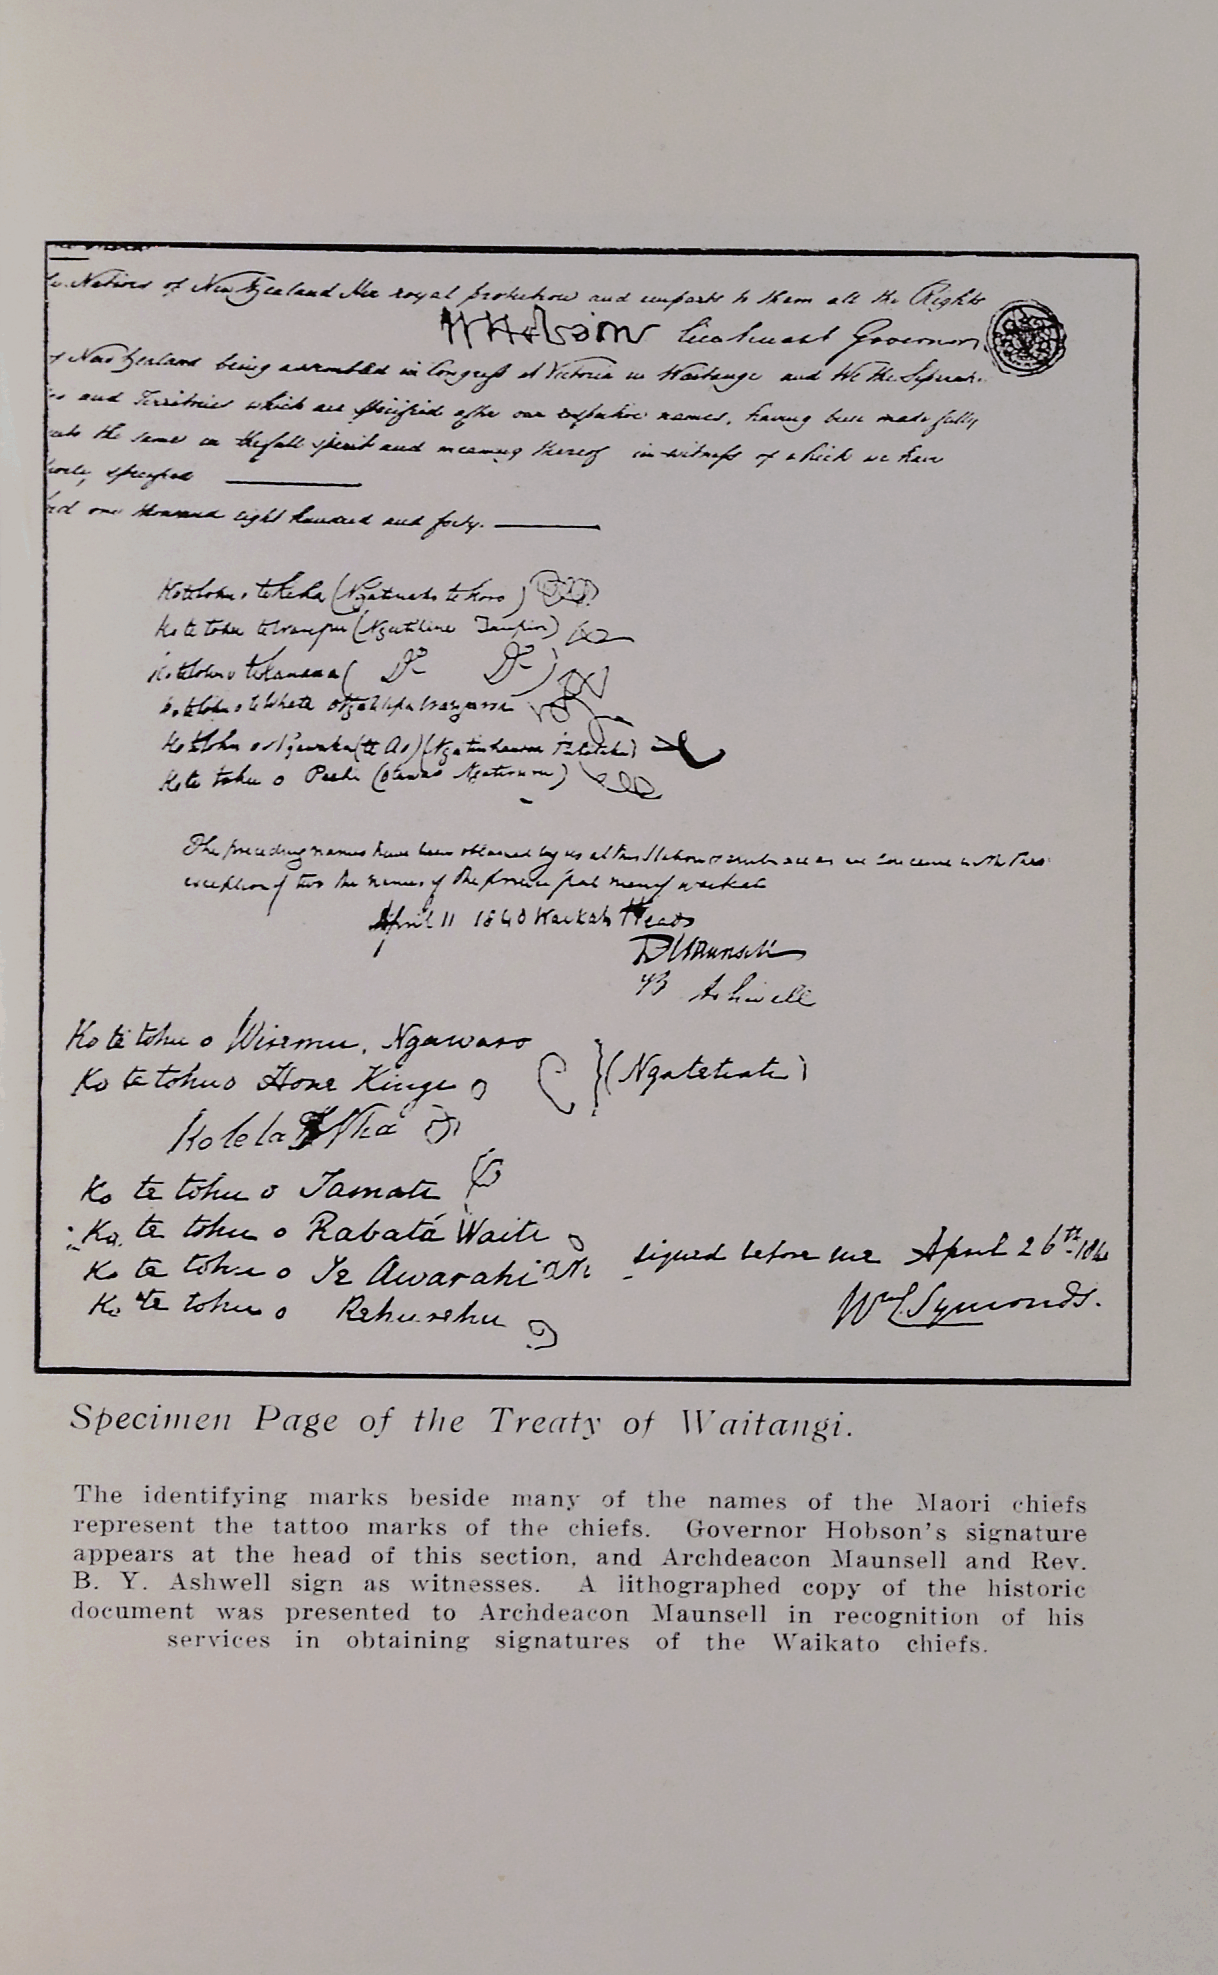 Natives of New Zealand Her royal protection and imparts to them all the Rights
W Hobson Lieutenant Governor.
New Zealand being assembled in Congress at Victoria in Waitangi and We the Separate
and Territories which are specified after our respective names, having been made fully
the same in the full spirit and meaning thereof in witness of which we have
specified
one thousand eight hundred and forty.
Ko te tohu o te Keha
Ko te tohu
Ko te tohu o te Kanawa
Ko te tohu o te Whata
Ko te tohu o Ngawaka (te Ao)
Ko te tohu o Peehi
The preceding names have been obtained by us at this Station & embrace as we conceive with the
exception of two the names of the principal men of Waikato
April 11 1840 Waikato Heads
R Maunsell
B Ashwell
Ko te tohu o Wiremu, Ngawaro
Ko te tohu o Hone Kinge
(Ngateteata)
Ko te tohu o Tamati
Ko te tohu o Rabata Waiti
Ko te tohu o Te Awarahi
signed before me April 26th 1840
Ko te tohu o Rehurehu
Wm C. Symonds.
Specimen Page of the Treaty of Waitangi.
The identifying marks beside many of the names of the Maori chiefs
represent the tattoo marks of the chiefs. Governor Hobson's signature
appears at the head of this section, and Archdeacon Maunsell and Rev.
B. Y. Ashwell sign as witnesses. A lithographed copy of the historic
document was presented to Archdeacon Maunsell in recognition of his
services in obtaining signatures of the Waikato chiefs.